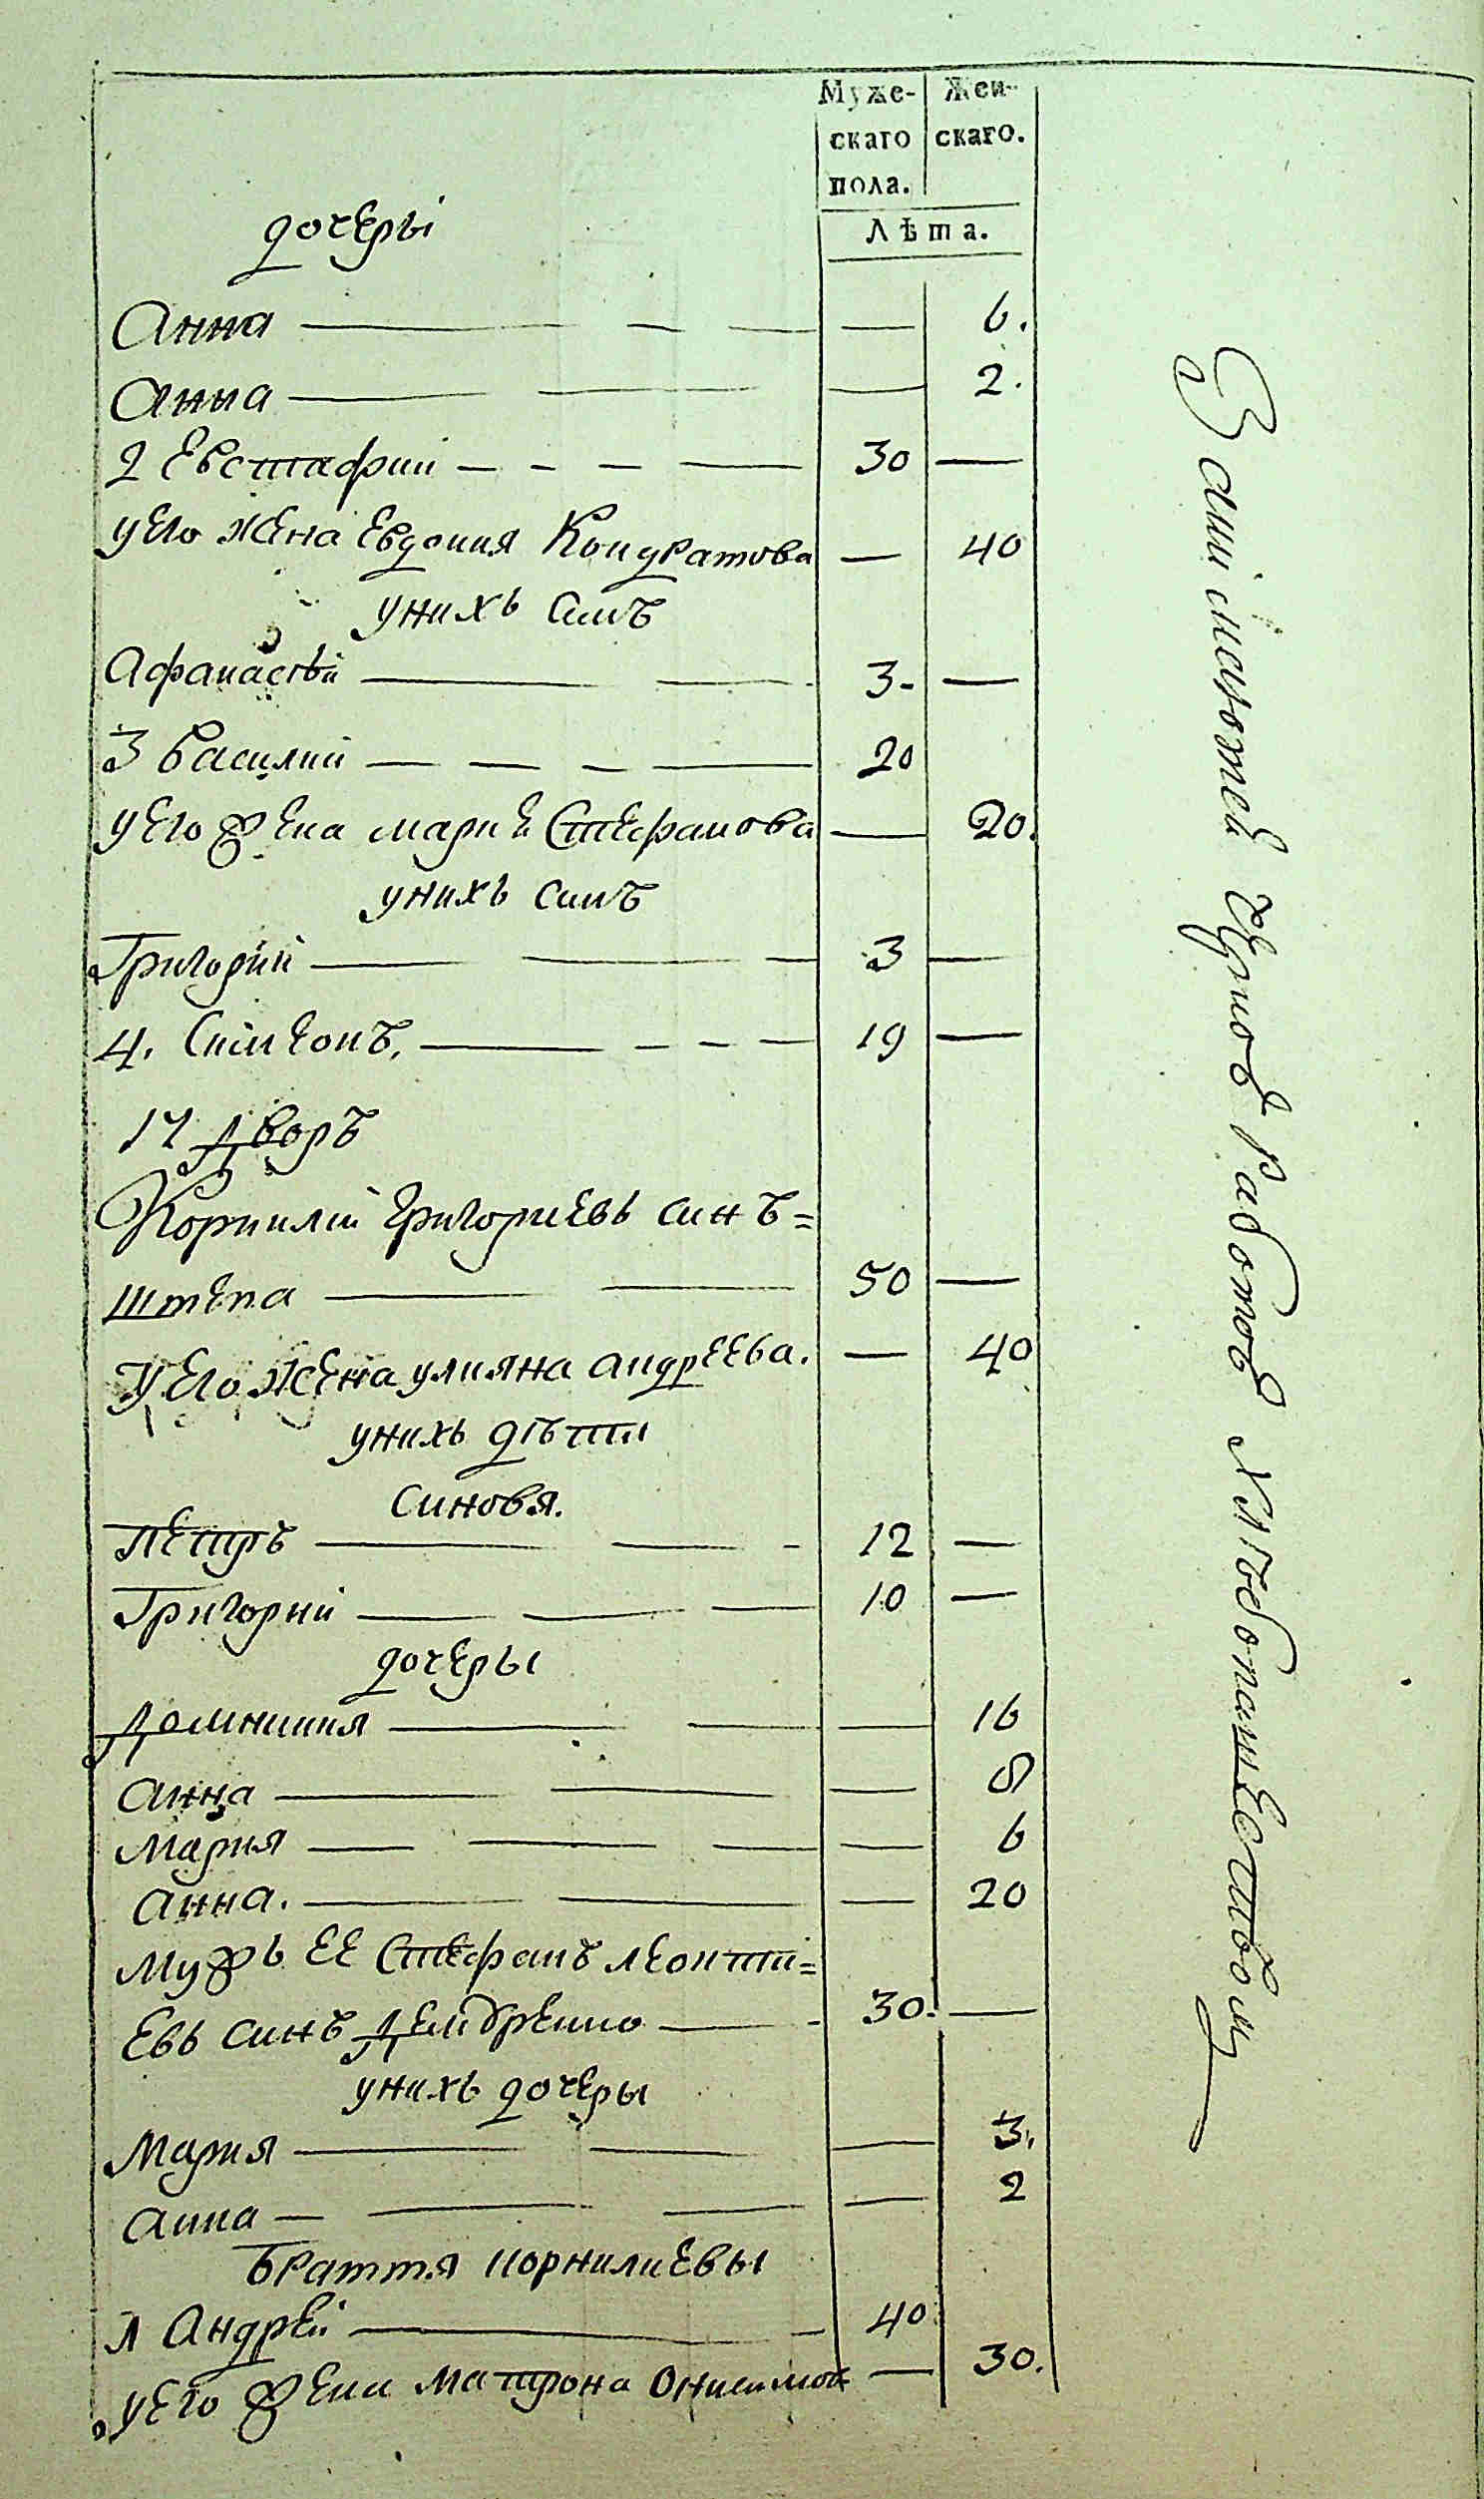 Муже-
скаго
пола.
Жен-
скаго.
Лѣта.
дочеры
Анна — — — — 6.
Анна — — — 2.
2 Евстафий — — — — 30 —
у его жена Евдокия Кондратова — 40
у нихъ синъ
Афанасѣй — — 3- —
3 Василий — — — — 20
у его жена Мариѣ Стефанова — 20.
у нихъ синъ
Григорий — — — 3 —
4. Симеонъ. — — — — 19 —
17 Дворъ
Корнилий Григориевъ синъ=
Штепа — — 50 —
У его жена улияна андреева. — 40
у нихъ дѣти
Синовя.
Петръ — — — 12 —
Григорий — — — 10 —
дочеры
Домникия — — — 16
Анна — — — 8
Мария — — — — 6
Анна. — — — 20
Мужъ ее Стефанъ леонти=
евъ синъ — 30. —
у нихъ дочеры
Мария — — — 3.
Анна — — — — 2
Браття корнилиевы
1 Андрей — — 40
у его жена Матрона Онисимова — 30.
хлѣбопашеством